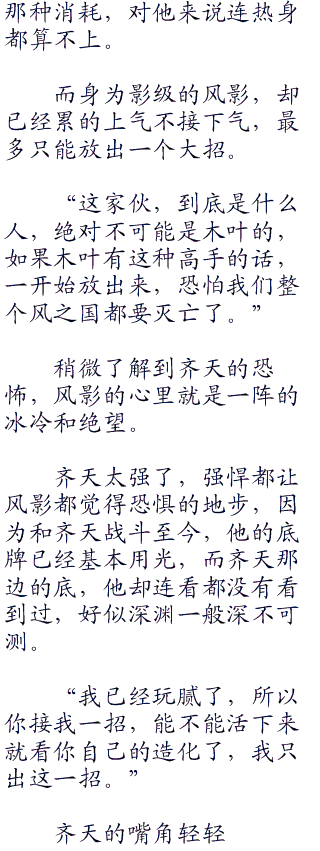 那种消耗，对他来说连热身
都算不上。
而身为影级的风影，却
已经累的上气不接下气，最
多只能放出一个大招。
“这家伙，到底是什么
人，绝对不可能是木叶的，
如果木叶有这种高手的话，
一开始放出来，恐怕我们整
个风之国都要灭亡了。”
稍微了解到齐天的恐
怖，风影的心里就是一阵的
冰冷和绝望。
齐天太强了，强悍都让
风影都觉得恐惧的地步，因
为和齐天战斗至今，他的底
牌已经基本用光，而齐天那
边的底，他却连看都没有看
到过，好似深渊一般深不可
测。
“我已经玩腻了，所以
你接我一招，能不能活下来
就看你自己的造化了，我只
出这一招。”
齐天的嘴角轻轻